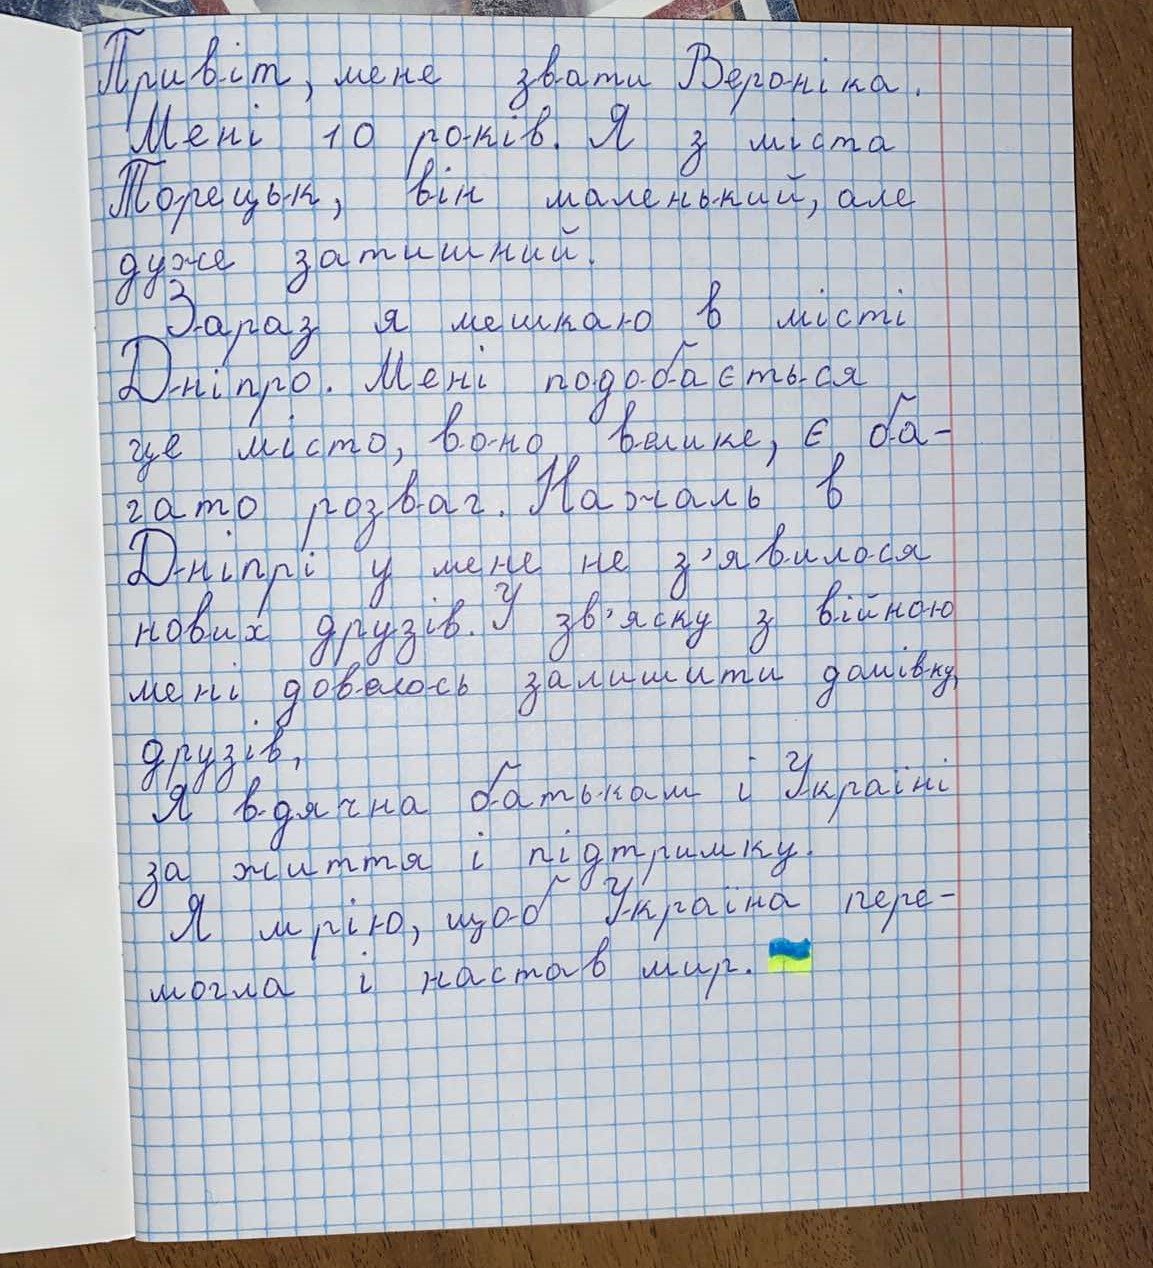 Привіт, мене звати Вероніка.
Мені 10 років. Я з міста
Торецьк, він маленький, але
дуже затишний.
Зараз я мешкаю в місті
Дніпро. Мені подобається
це місто, воно велике, є ба-
гато розваг. Нажаль в
Дніпрі у мене не з'явилося
нових друзів. У зв'яску з війною
мені довелось залишити домівку,
друзів,
Я вдячна батькам і Україні
за життя і підтримку.
Я мрію, щоб Україна пере-
могла і настав мир.